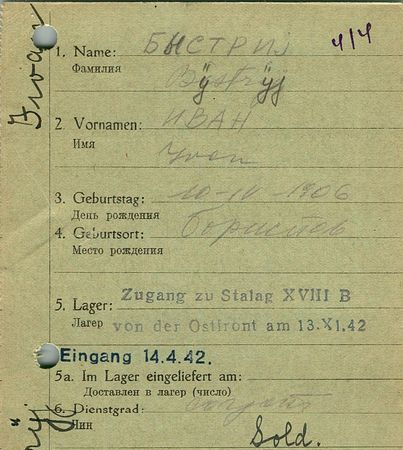 4/4
1. Name: БЫСТРИJ
Фамилия Bÿstrÿj
2. Vornamen: ИВАН
Имя Yvan
3. Geburtstag: 10-IV-1906
День рождения
4. Geburtsort:
Место рождения
5. Lager: Zugang zu Stalag XVIII B
Лагерь von der Ostfront am 13.XI.42
Eingang 14.4.42.
5a. Im Lager eingeliefert am:
Доставлен в лагерь (число)
6. Dienstgrad:
Чин
Sold.